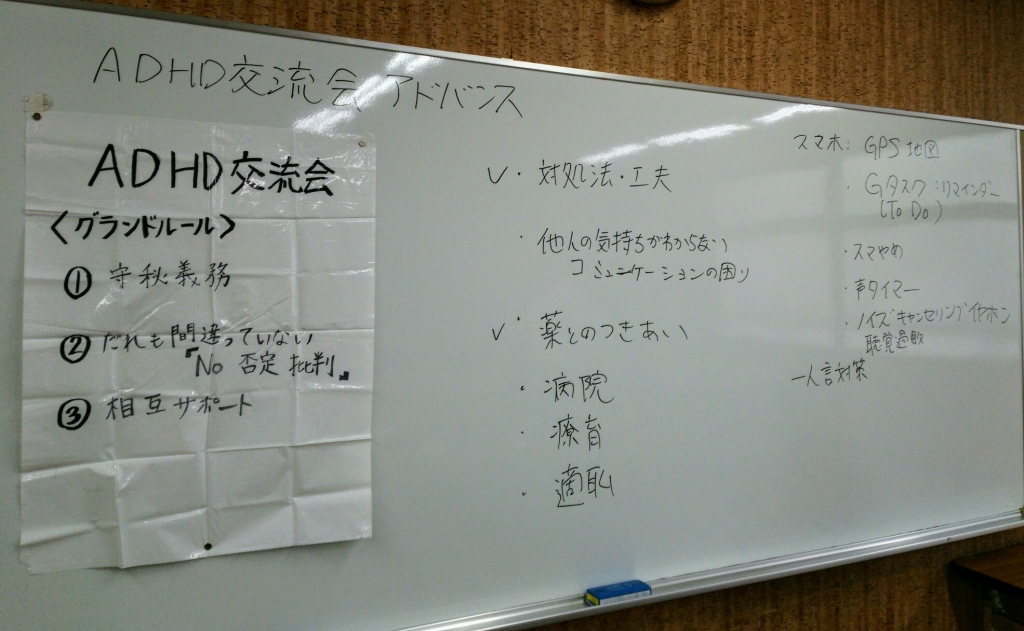 ADHD交流会 アドバンス
ADHD交流会
〈グランドルール〉
① 守秘義務
② だれも間違っていない
「No 否定批判」
③ 相互サポート
✓・対処法・工夫
・他人の気持ちがわからない
コミュニケーションの困り
✓・薬とのつきあい
・病院
・療育
・適職
スマホ: GPS地図
・Gタスク:リマインダー
(To Do)
・スマやめ
・声タイマー
・ノイズキャンセリングイヤホン
聴覚過敏
一人言対策